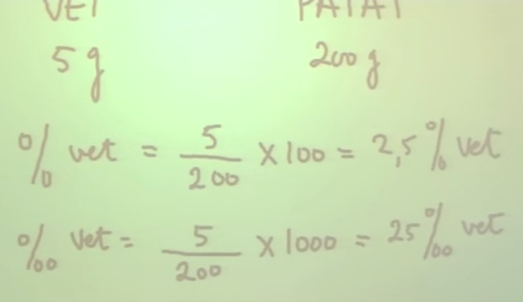 VET PATAT
5 g 200 g
% vet = 5/200 x 100 = 2,5 % vet
‰ vet = 5/200 x 1000 = 25 ‰ vet